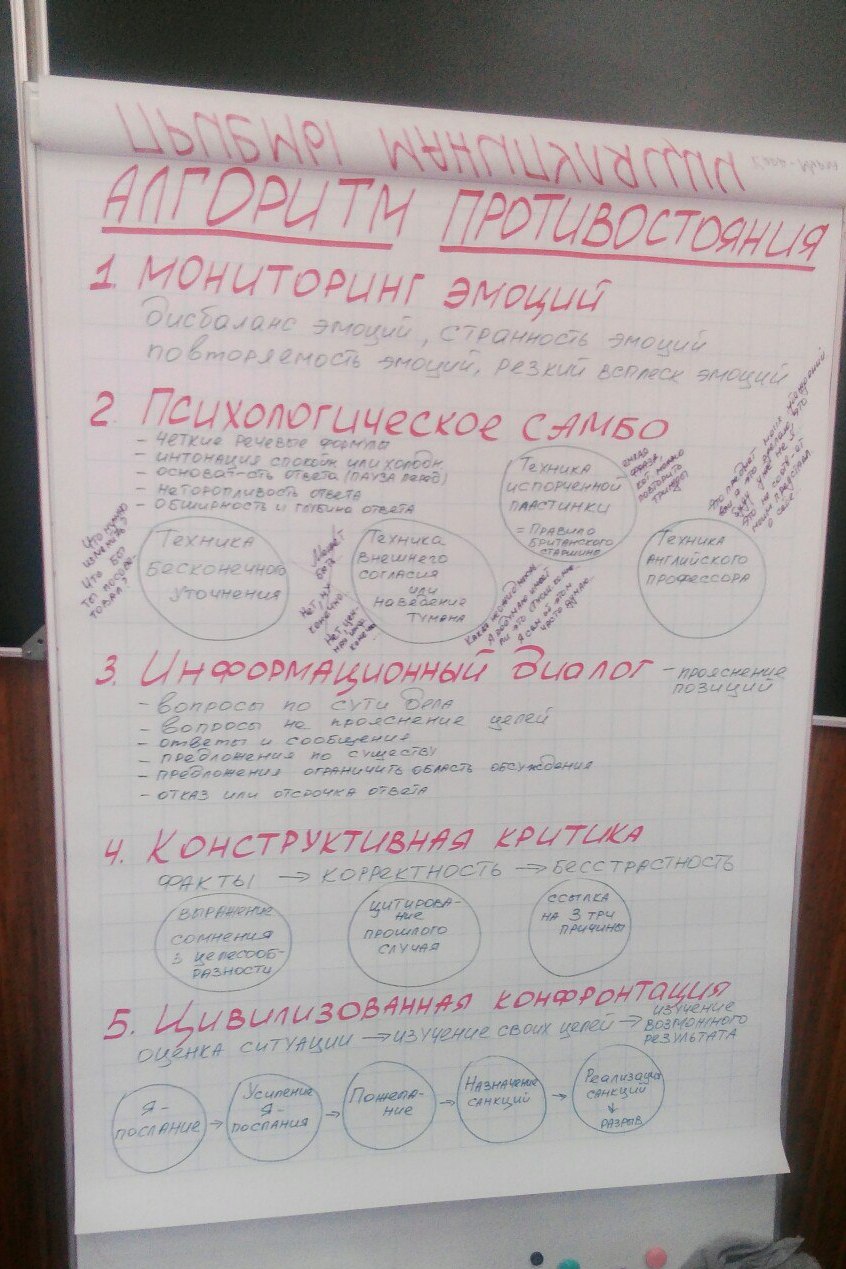 ПРИЕМЫ МАНИПУЛЯЦИИ
АЛГОРИТМ ПРОТИВОСТОЯНИЯ
1. МОНИТОРИНГ ЭМОЦИЙ
дисбаланс эмоций, странность эмоций
повторяемость эмоций, резкий всплеск эмоций
2. Психологическое самбо
- четкие речевые формулы
- интонация спокойн или холодн
- основат-сть ответа (пауза перед)
- неторопливость ответа
- обширность и глубина ответа
Техника
бесконечного
уточнения
Что нужно
изменить?
Что бы
ты посове-
товал?
Техника
внешнего
согласия
или
наведение
тумана
Может
быть
Нет, ну
конечно.
Нет,
конечно
Техника
испорченной
пластинки
= Правило
британского
старшины
фраза,
кот можно
повторить
трижды
Техника
английского
профессора
3. Информационный диалог - прояснение
позиций
- вопросы по сути дела
- вопросы на прояснение целей
- ответы и сообщения
- предложения по существу
- предложения ограничить область обсуждения
- отказ или отсрочка ответа
4. Конструктивная критика
факты → корректность → бесстрастность
выражение
сомнения
в целесооб-
разности
цитирова-
ние
прошлого
случая
ссылка
на 3 три
причины
5. Цивилизованная конфронтация
оценка ситуации → изучение своих целей → изучение
возможного
результата
Я-
послание →
Усиление
Я-
послания →
Пожела-
ние →
Назначение
санкций →
Реализация
санкций
↓
разрыв